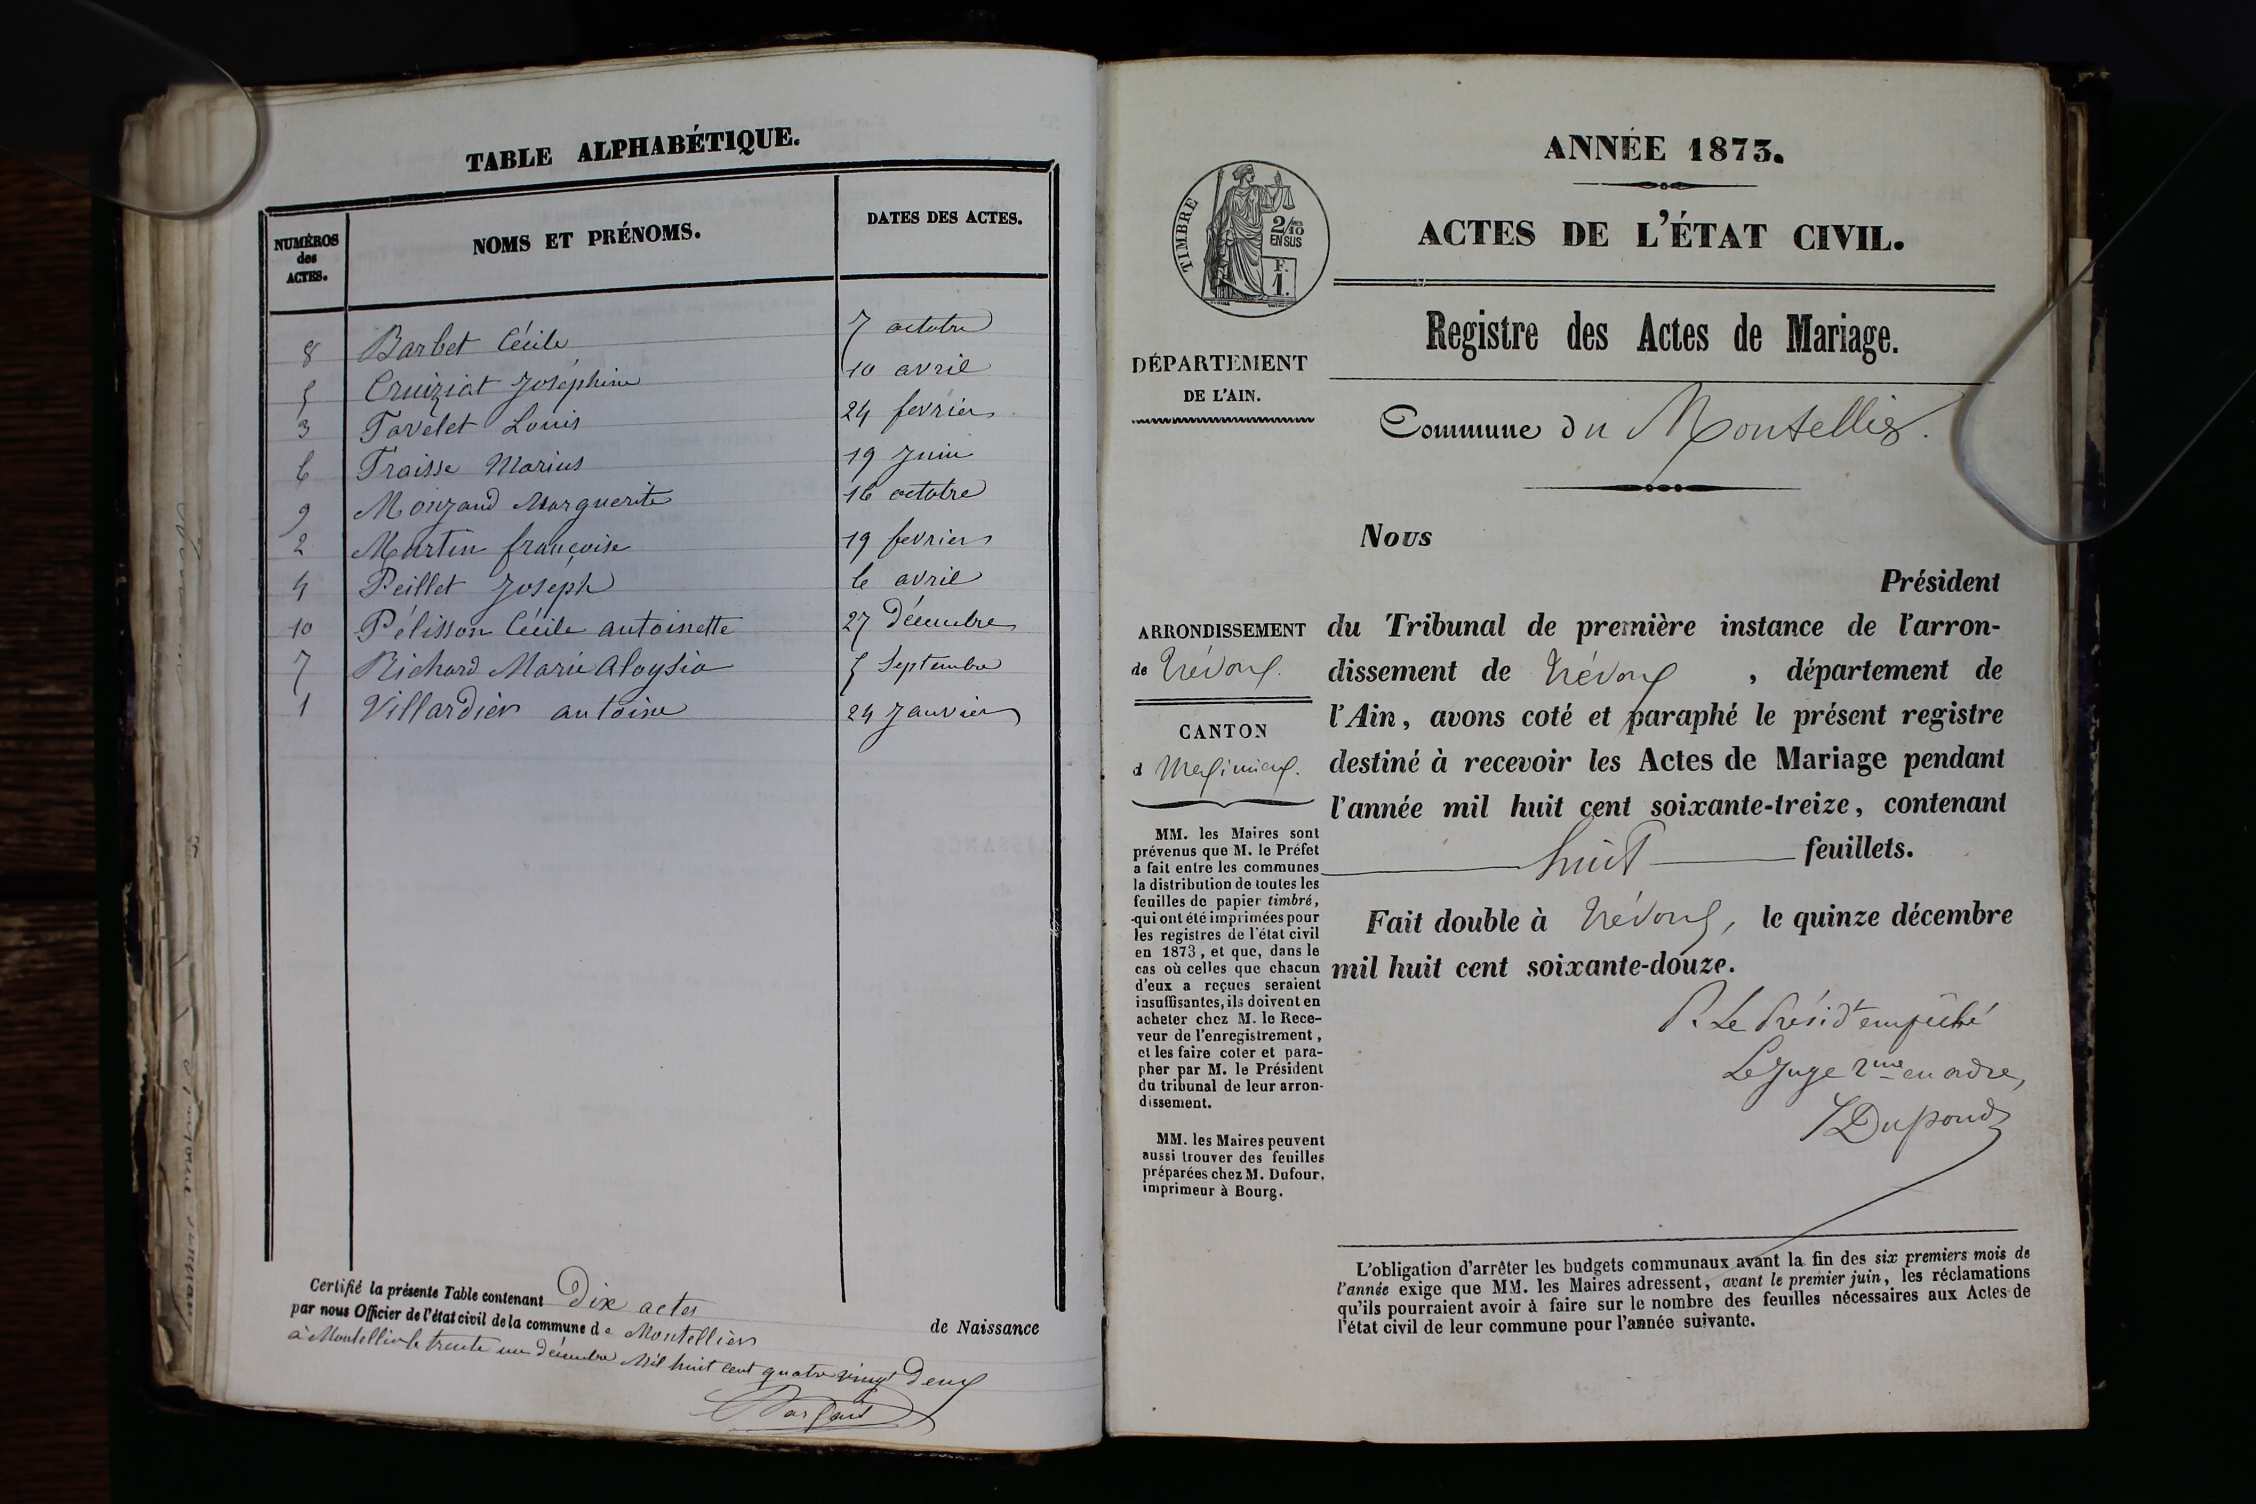 TABLE ALPHABÉTIQUE.
NUMÉROS des ACTES. NOMS ET PRÉNOMS. DATES DES ACTES.
8 Barbet Cécile 7 octobre
5 Cruiziat Joséphine 10 avril
3 Favelet Louis 24 fevrier
6 Fraisse Marius 19 Juin
9 Monjand Marguerite 16 octobre
2 Martin françoise 19 fevrier
4 Peillet Joseph 6 avril
10 Pélisson Cécile antoinette 27 Décembre
7 Richard Marie Aloysia 5 Septembre
1 Villardier antoine 24 Janvier
Certifié la présente Table contenant Dix actes de Naissance
par nous Officier de l'état civil de la commune de Montellier
à Montellier le trente un décembre Mil huit cent quatre vingt Deux
ANNÉE 1873.
ACTES DE L'ÉTAT CIVIL.
TIMBRE
2/10
EN SUS
F.
1.
Registre des Actes de Mariage.
DÉPARTEMENT
DE L'AIN.
Commune du Montellier.
Nous
Président
du Tribunal de première instance de l'arron-
dissement de Trévoux, département de
l'Ain, avons coté et paraphé le présent registre
destiné à recevoir les Actes de Mariage pendant
l'année mil huit cent soixante-treize, contenant
huit feuillets.
Fait double à Trévoux, le quinze décembre
mil huit cent soixante-douze.
P. Le Présidt empêché
Le Juge 2me en ordre,
Dupond
ARRONDISSEMENT
de Trévoux.
CANTON
d Meximieux.
MM. les Maires sont
prévenus que M. le Préfet
a fait entre les communes
la distribution de toutes les
feuilles de papier timbré,
qui ont été imprimées pour
les registres de l'état civil
en 1873, et que, dans le
cas où celles que chacun
d'eux a reçues seraient
insuffisantes, ils doivent en
acheter chez M. le Rece-
veur de l'enregistrement,
et les faire coter et para-
pher par M. le Président
du tribunal de leur arron-
dissement.
MM. les Maires peuvent
aussi trouver des feuilles
préparées chez M. Dufour,
imprimeur à Bourg.
L'obligation d'arrêter les budgets communaux avant la fin des six premiers mois de
l'année exige que MM. les Maires adressent, avant le premier juin, les réclamations
qu'ils pourraient avoir à faire sur le nombre des feuilles nécessaires aux Actes de
l'état civil de leur commune pour l'année suivante.